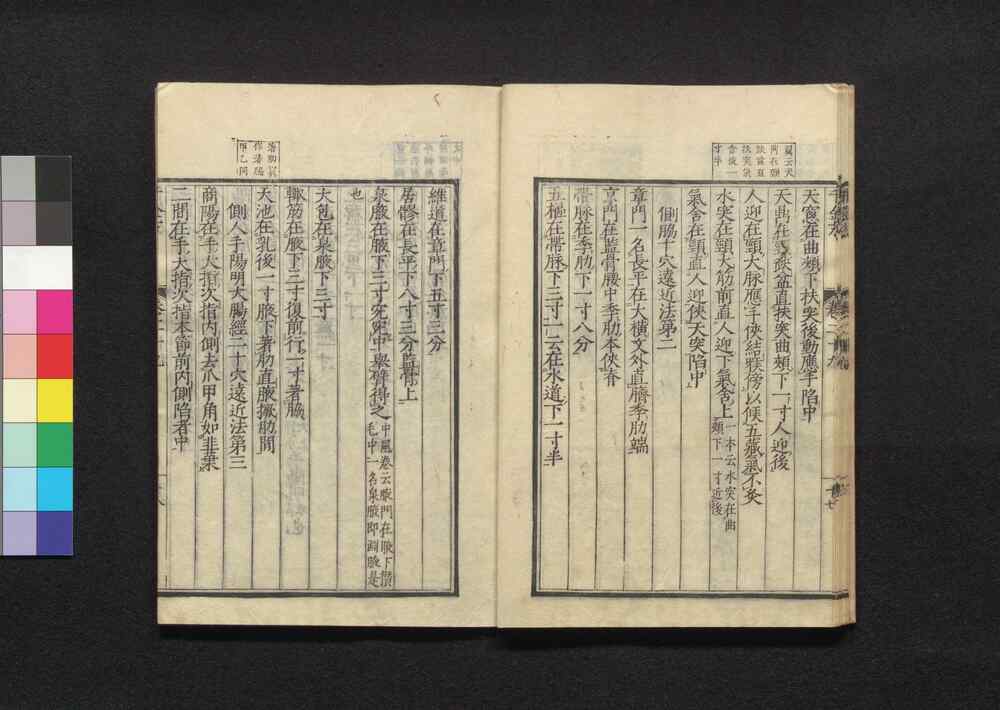 天窻在曲頰下扶突後動應手陷中
天鼎在缺盆直扶突曲頰下一寸人迎後
人迎在頸大脉應手俠結喉傍以候五藏氣不灸
水突在頸大筋前直人迎下氣舍上一本云水突在曲頰下一寸近後
氣舍在頸直人迎俠天突陷中
側脇十穴遠近法第二
章門一名長平在大橫文外直臍季肋端
京門在監骨腰中季肋本俠脊
帶脉在季肋下一寸八分
五樞在帶脉下三寸一云在水道下一寸半
維道在章門下五寸三分
居髎在長平下八寸三分監骨上
泉腋在腋下三寸宛宛中舉臂得之中風卷云腋門在腋下攢毛中一名泉腋即淵腋是
也
大包在泉腋下三寸
輙筋在腋下三寸復前行一寸著脇
天池在乳後一寸腋下著肋直腋撅肋間
側人手陽明大腸經二十穴遠近法第三
商陽在手大指次指内側去爪甲角如韭葉
二間在手大指次指本節前内側陷者中